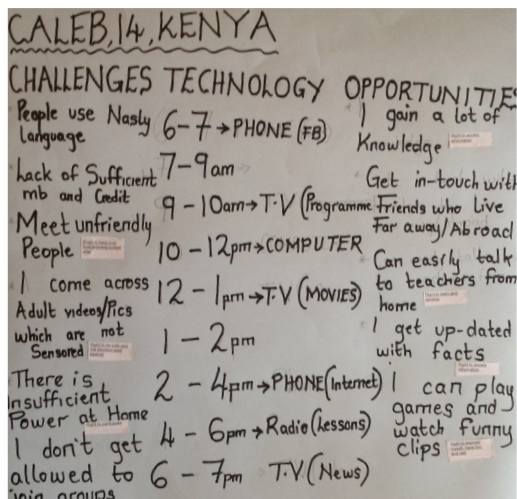 CALEB, 14, KENYA
CHALLENGES
People use Nasty
language
Lack of Sufficient
mb and Credit
Meet unfriendly
People
I come across
Adult videos/Pics
which are not
Sensored
There is
insufficient
Power at Home
I don't get
allowed to
join groups
TECHNOLOGY
6-7→PHONE (FB)
7-9am
9-10am→T.V (Programme
10-12pm→COMPUTER
12-1pm→T.V (MOVIES)
1-2pm
2-4pm→PHONE (Internet)
4-6pm→Radio (Lessons)
6-7pm T.V (News)
OPPORTUNITIES
I gain a lot of
Knowledge
Get in-touch with
Friends who live
Far away/Abroad
Can easily talk
to teachers from
home
I get up-dated
with facts
I can play
games and
watch funny
clips